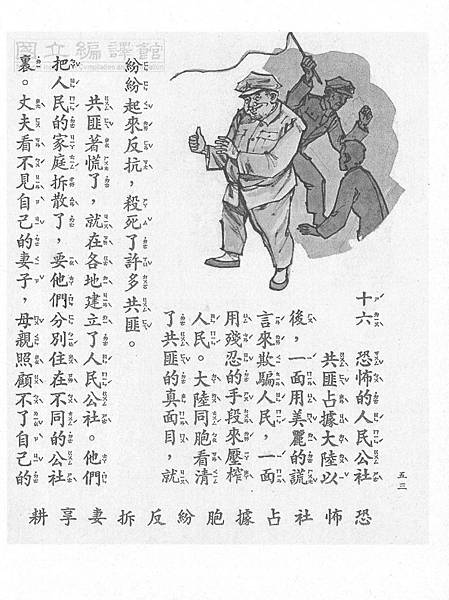 國立編譯館
十六 恐怖的人民公社
共匪占據大陸以
後，一面用美麗的謊
言來欺騙人民，一面
用殘忍的手段來壓榨
人民。大陸同胞看清
了共匪的真面目，就
紛紛起來反抗，殺死了許多共匪。
共匪著慌了，就在各地建立了人民公社。他們
把人民的家庭拆散了，要他們分別住在不同的公社
裏。丈夫看不見自己的妻子，母親照顧不了自己的
五三
恐怖社占據胞紛反拆妻享耕